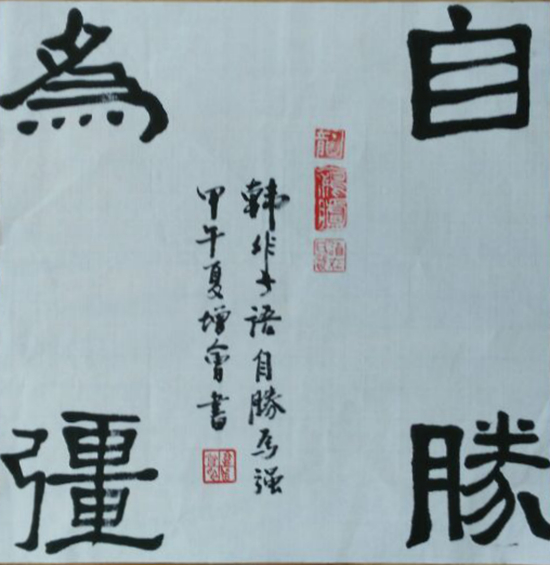 自勝
為彊
韩非子語自勝為强
甲午夏增會書